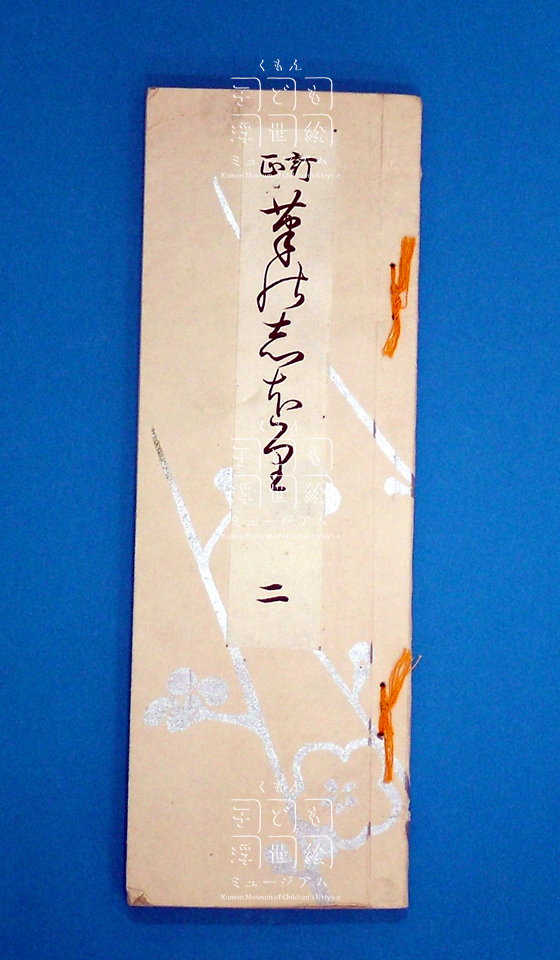 くもん
子ども
浮世絵
ミュージアム
Kumon Museum of Children's Ukiyo-e
訂正
筆能志遠里
二
くもん
子ども
浮世絵
ミュージアム
Kumon Museum of Children's Ukiyo-e
くもん
子ども
浮世絵
ミュージアム
Kumon Museum of Children's Ukiyo-e